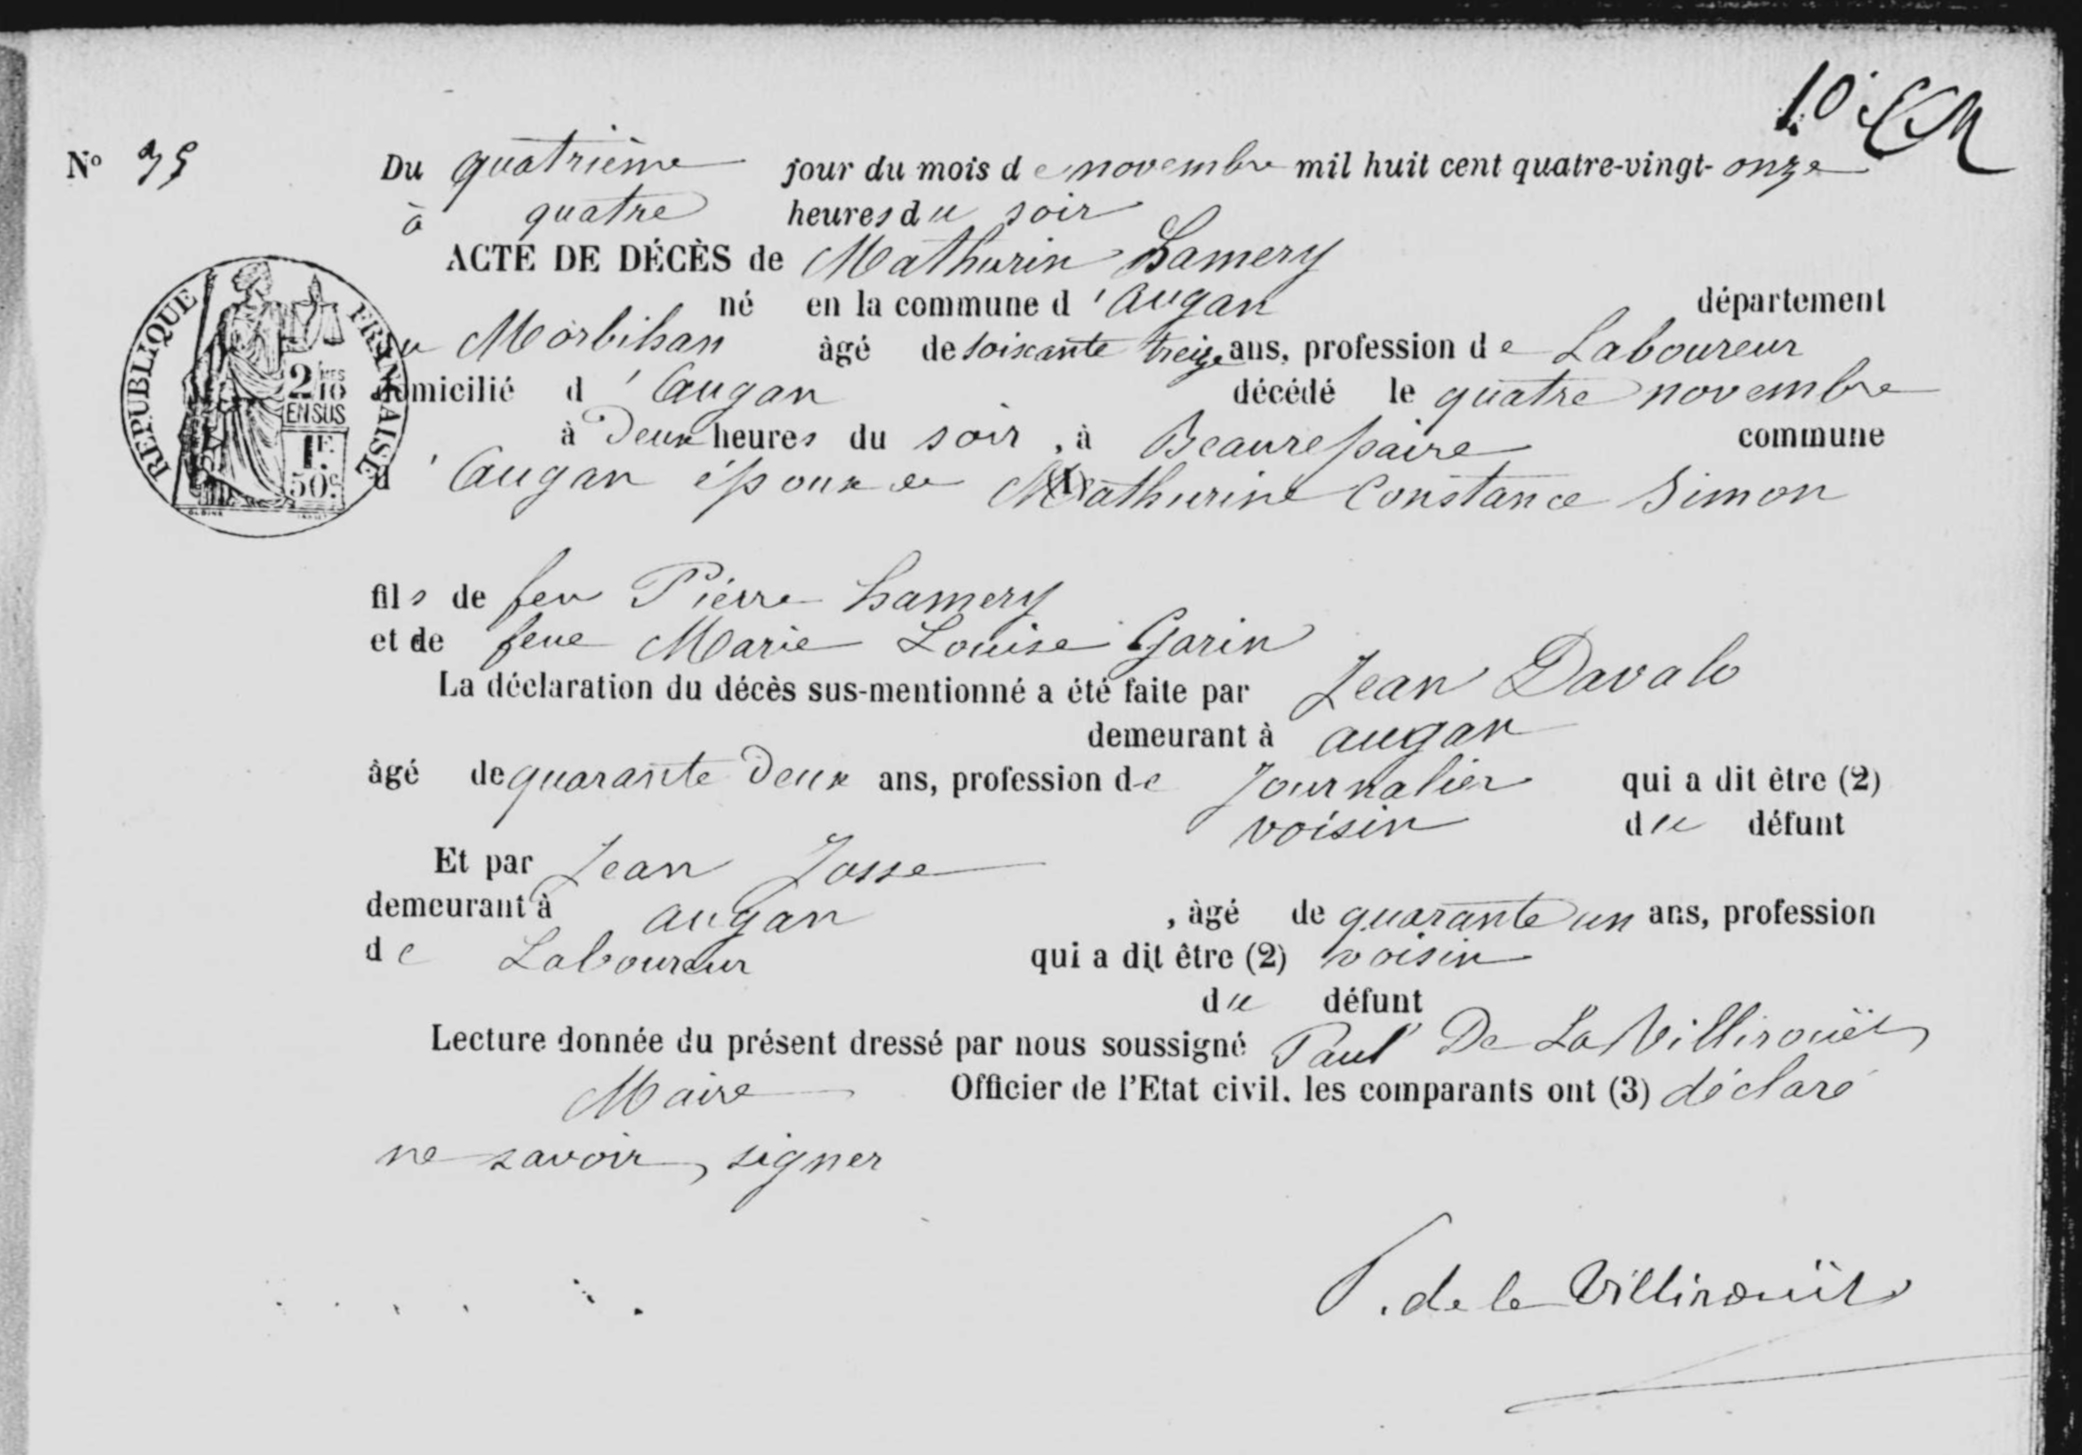 10
N° 35 Du quatrième jour du mois de novembre mil huit cent quatre-vingt-onze
à quatre heures du soir
ACTE DE DÉCÈS de Mathurin Hamery
né en la commune d'Augan département
du Morbihan âgé de soixante treize ans, profession de Laboureur
domicilié d'Augan décédé le quatre novembre
à Deux heures du soir, à Beaurepaire commune
d'Augan époux de Mathurine Constance Simon
RÉPUBLIQUE FRANÇAISE
2/10 MES
EN SUS
1F.
50c.
fils de feu Pierre Hamery
et de feue Marie Louise Garin
La déclaration du décès sus-mentionné a été faite par Jean Davalo
demeurant à augan
âgé de quarante Deux ans, profession de Journalier qui a dit être (2)
voisin du défunt
Et par Jean Josse
demeurant à augan, âgé de quarante un ans, profession
de Laboureur qui a dit être (2) voisin
du défunt
Lecture donnée du présent dressé par nous soussigné Paul De La Villirouët
Maire Officier de l'Etat civil. les comparants ont (3) déclaré
ne savoir signer
P. de la Villirouët